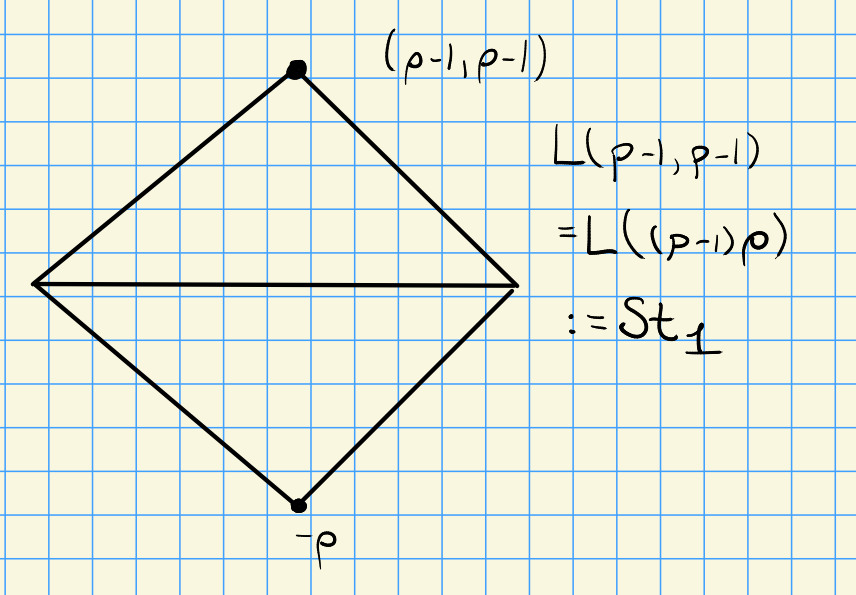 (p-1, p-1)
L(p-1, p-1)
= L((p-1)ρ)
:= St₁
-ρ